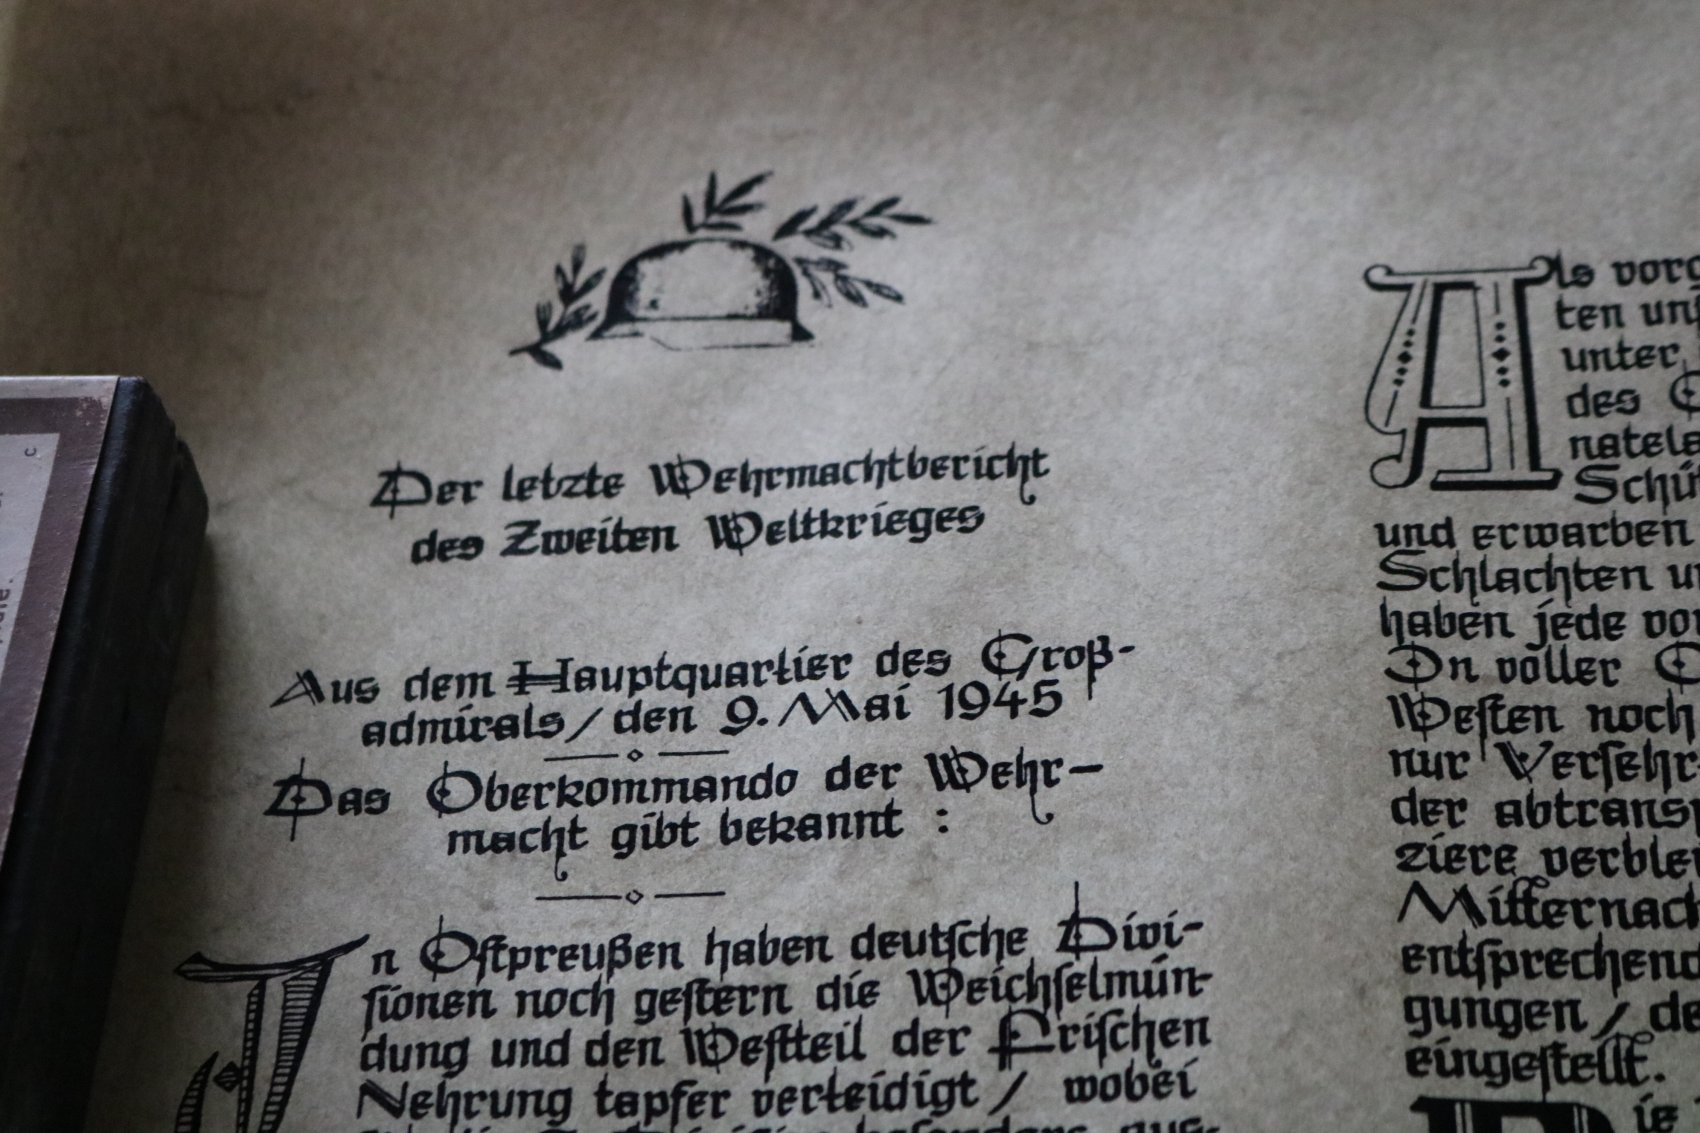 Der letzte Wehrmachtbericht
des Zweiten Weltkrieges
Aus dem Hauptquartier des Groß-
admirals / den 9. Mai 1945
Das Oberkommando der Wehr-
macht gibt bekannt :
In Ostpreußen haben deutsche Divi-
sionen noch gestern die Weichselmün-
dung und den Westteil der Frischen
Nehrung tapfer verteidigt / wobei
Als
ten
unter
des
Schü
und erwarben
Schlachten
haben jede
In voller
Westen noch
nur Versehr
der abtransp
ziere verblei
Mitternach
entsprechend
gungen / de
eingestellt.
Die